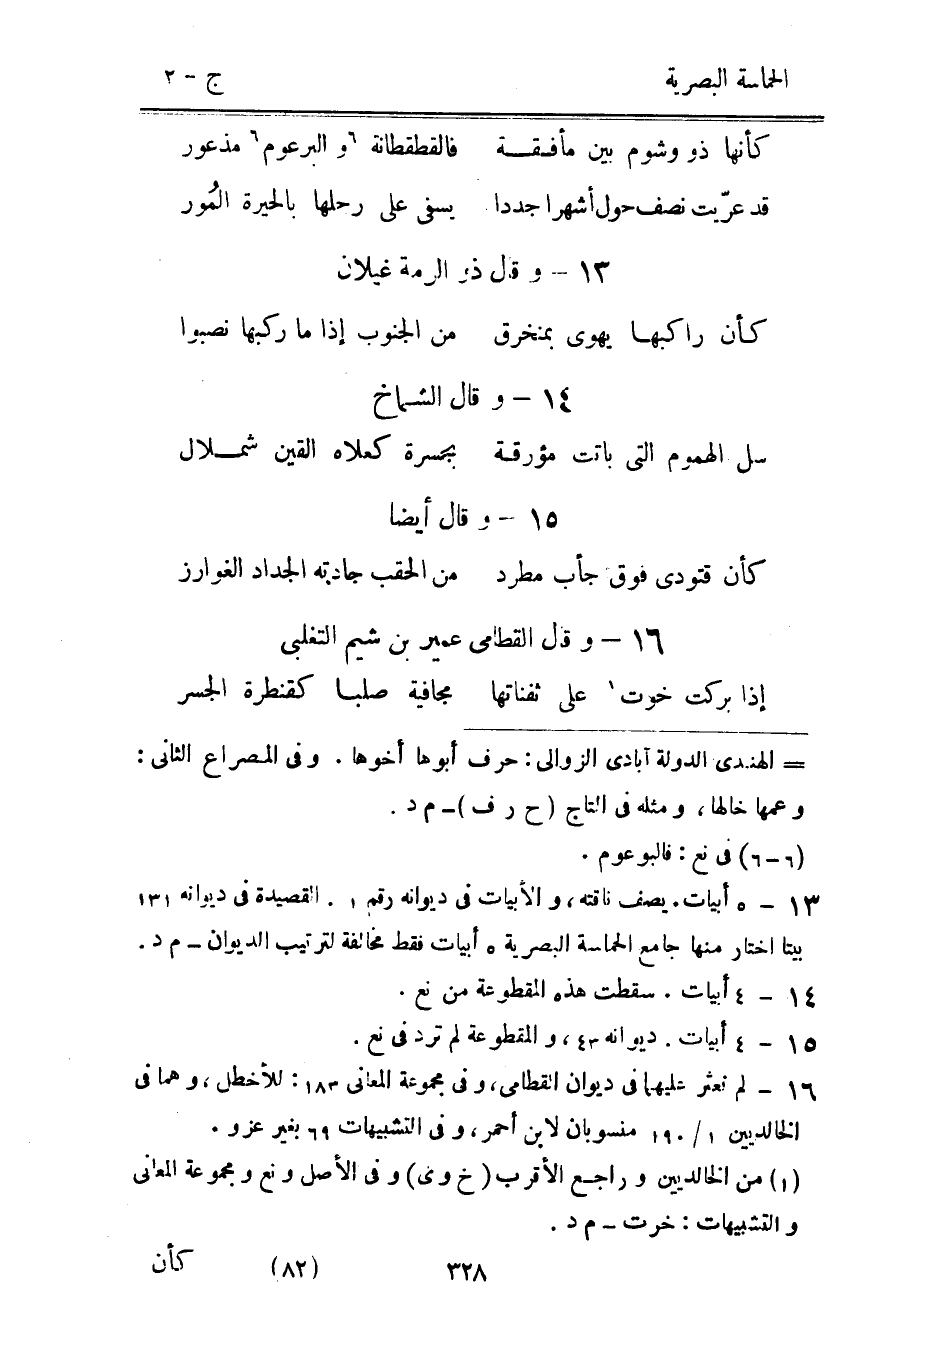 الحماسة البصرية ج - ٢
كأنها ذو وشوم بين مأفقة فالقطقطانة ٦و البرعوم٦ مذعور
قد عرّيت نصف حول أشهرا جددا يسفى على رحلها بالحيرة المُور
١٣ - و قال ذو الرمة غيلان
كأن راكبها يهوى بمنخرق من الجنوب إذا ما ركبها نصبوا
١٤ - و قال الشماخ
سل الهموم التى باتت مؤرقة بجسرة كعلاه القين شملال
١٥ - و قال أيضا
كأن قتودى فوق جأب مطرد من الحقب جادته الجداد الغوارز
١٦ - و قال القطامى عمير بن شيم التغلبى
إذا بركت خوت١ على ثفناتها مجافية صلبا كقنطرة الجسر
= الهندى الدولة آبادى الزوالى: حرف أبوها أخوها . و فى المصراع الثانى:
و عمها خالها، و مثله فى التاج (ح ر ف) - م د .
(٦-٦) فى نع: فالبوعوم .
١٣ - ٥ أبيات. يصف ناقته، و الأبيات فى ديوانه رقم ١ . القصيدة فى ديوانه ١٣١
بيتا اختار منها جامع الحماسة البصرية ٥ أبيات فقط مخالفة لترتيب الديوان - م د .
١٤ - ٤ أبيات . سقطت هذه المقطوعة من نع .
١٥ - ٤ أبيات . ديوانه ٤٣، و المقطوعة لم ترد فى نع .
١٦ - لم نعثر عليهما فى ديوان القطامى، و فى مجموعة المعانى ١٨٣: للأخطل، و هما فى
الخالديين ١ / ١٩٠ منسوبان لابن أحمر، و فى التشبيهات ٦٩ بغير عزو .
(١) من الخالديين و راجع الأقرب (خ و ى) و فى الأصل و نع و مجموعة المعانى
و التشبيهات : خرت - م د .
٣٢٨ (٨٢) كأن